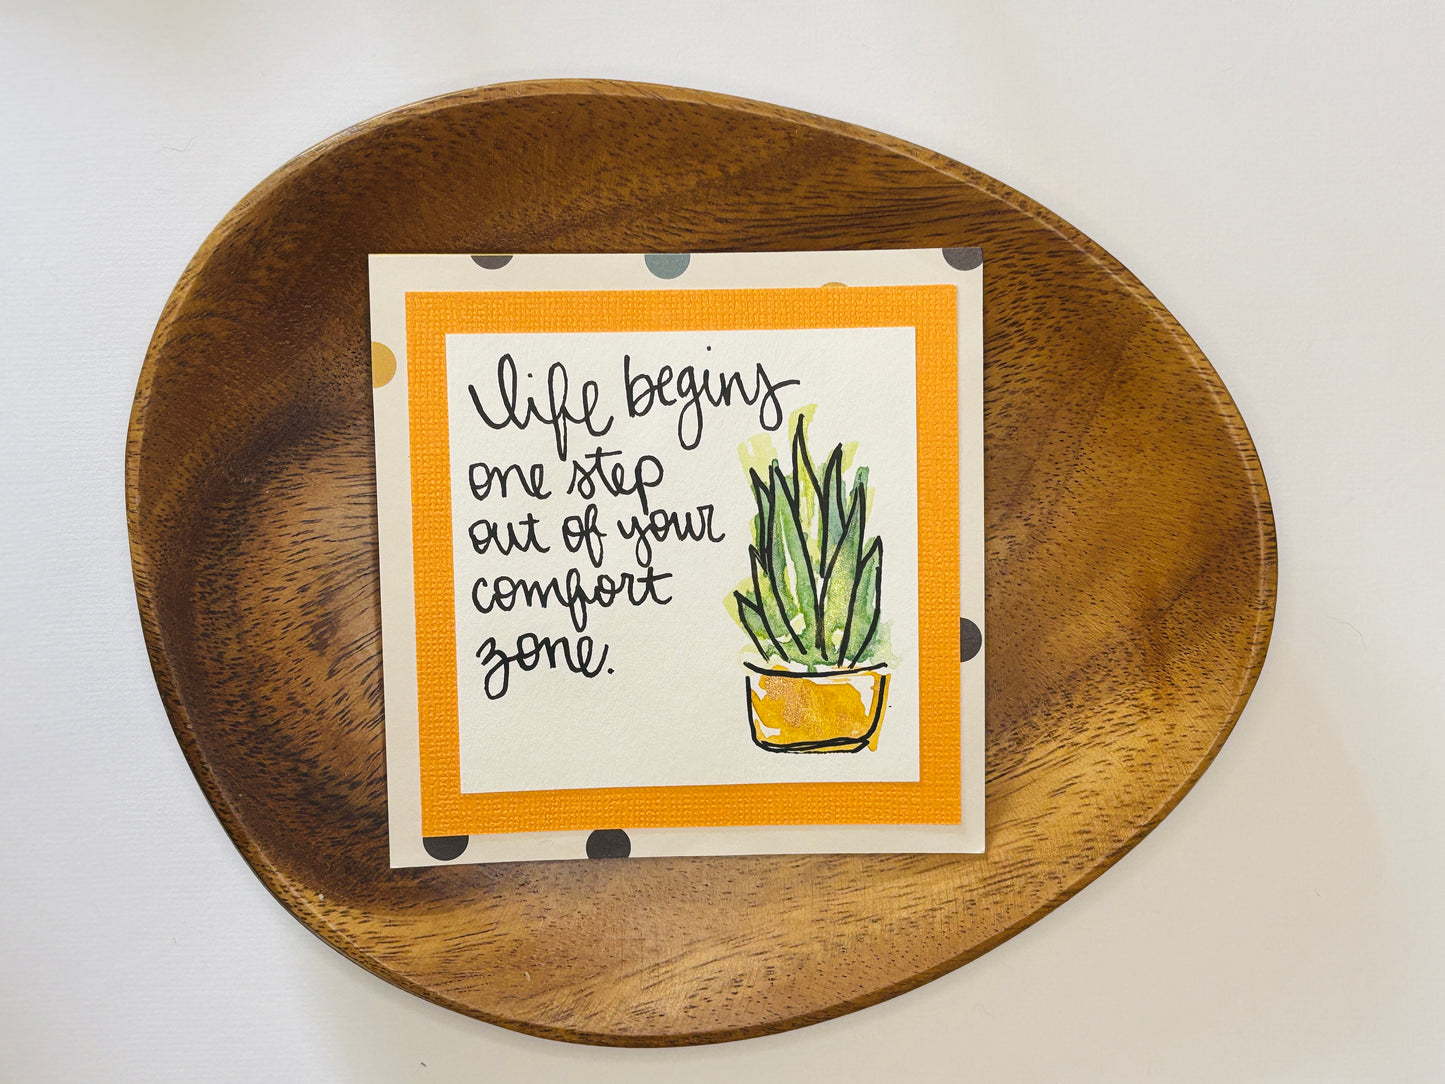 life begins
one step
out of your
comfort
zone.